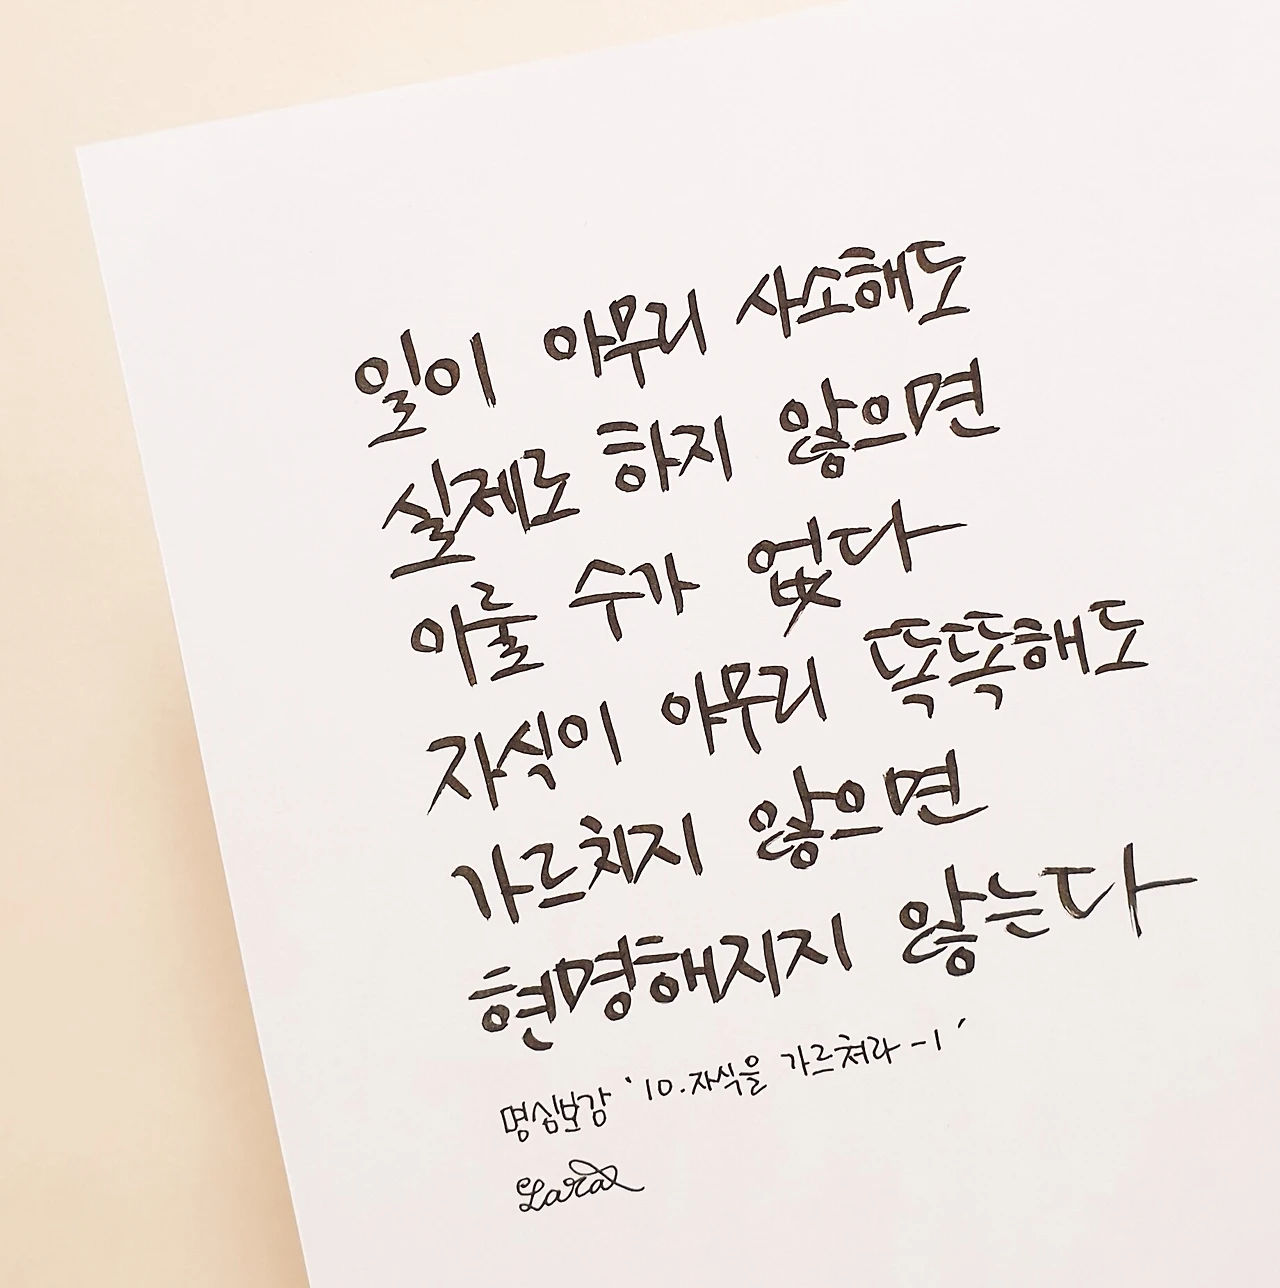 일이 아무리 사소해도
실제로 하지 않으면
이룰 수가 없다
자식이 아무리 똑똑해도
가르치지 않으면
현명해지지 않는다
명심보감 '10.자식을 가르쳐라-1'
Lara